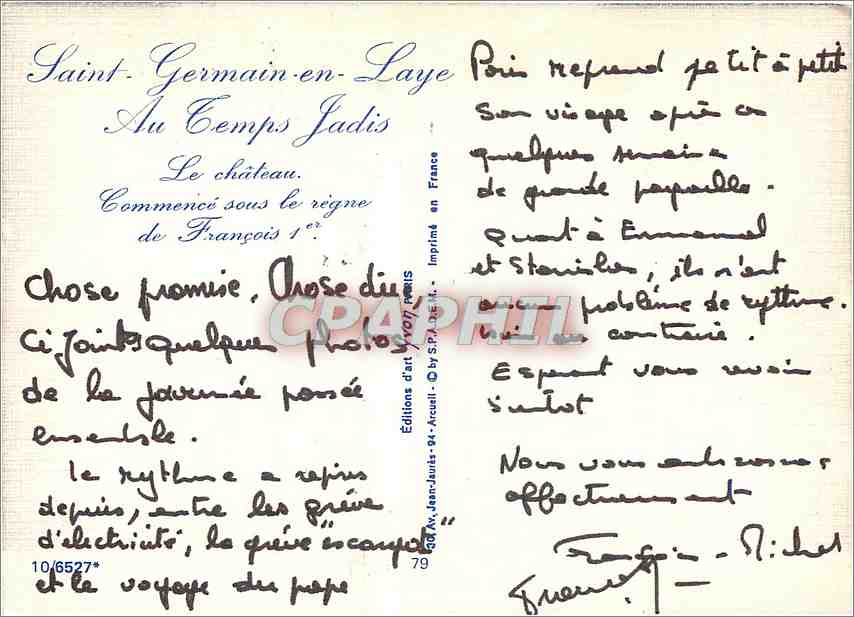 Saint-Germain-en-Laye
Au Temps Jadis
Le château.
Commencé sous le règne
de François 1er.
Chose promise, Chose due,
Ci-joints quelques photos
de la journée passée
ensemble.
le rythme a repris
depuis, entre les grève
d'électricité, la grève "escargot"
et le voyage du pape
10/6527*
79
Éditions d'art Yvon, PARIS
30, Av. Jean-Jaurès - 94 - Arcueil - © by S.P.A.D.E.M. - Imprimé en France
CPAPHIL
Paris reprend petit à petit
son visage après
quelques semaine
de grande
Quant à Emmanuel
et Stanislas, ils n'ont
aucun problème de rythme.
bien au contraire.
Esperant vous revoir
bientot
Nous vous embrassons
affectueusement
François - Michel